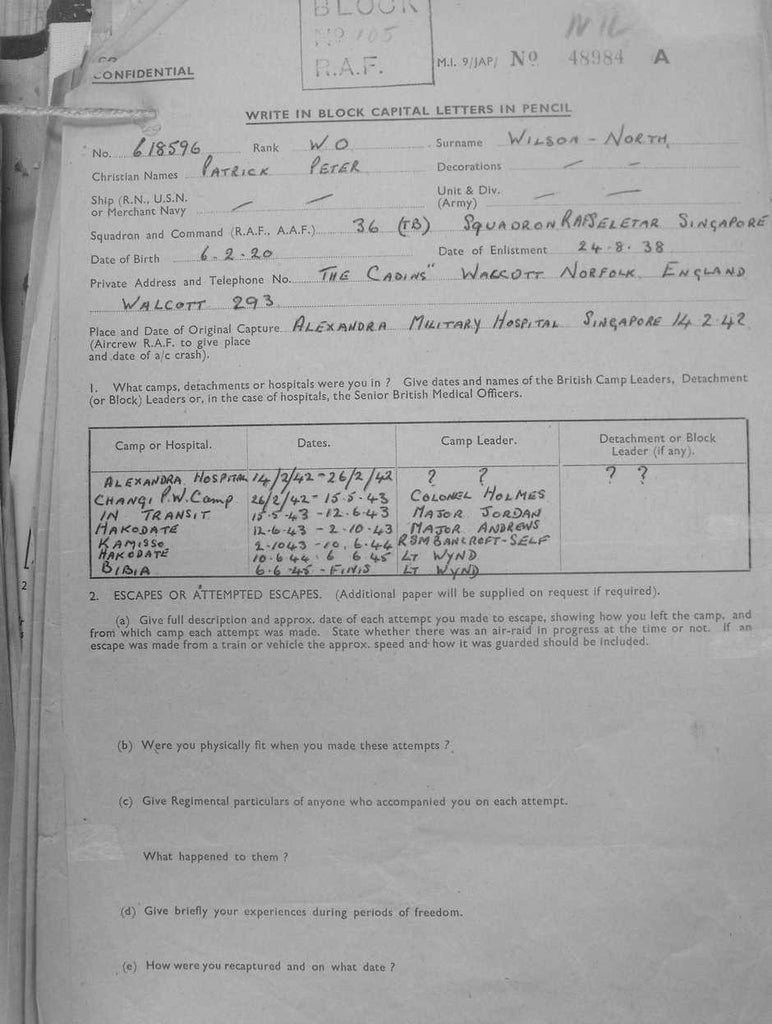 BLOCK
Nº 105
R.A.F.
NIL
M.I. 9/JAP/ Nº 48984 A
CONFIDENTIAL
WRITE IN BLOCK CAPITAL LETTERS IN PENCIL
No. 618596 Rank W O Surname WILSON - NORTH
Christian Names PATRICK PETER Decorations — —
Ship (R.N., U.S.N. or Merchant Navy — — Unit & Div. (Army) — —
Squadron and Command (R.A.F., A.A.F.) 36 (TB) SQUADRON RAF SELETAR SINGAPORE
Date of Birth 6.2.20 Date of Enlistment 24.8.38
Private Address and Telephone No. THE CABINS" WALCOTT NORFOLK ENGLAND
WALCOTT 293
Place and Date of Original Capture ALEXANDRA MILITARY HOSPITAL SINGAPORE 14 2.42
(Aircrew R.A.F. to give place
and date of a/c crash).
1. What camps, detachments or hospitals were you in ? Give dates and names of the British Camp Leaders, Detachment
(or Block) Leaders or, in the case of hospitals, the Senior British Medical Officers.
Camp or Hospital. Dates. Camp Leader. Detachment or Block Leader (if any).
ALEXANDRA HOSPITAL 14/2/42-26/2/42 ? ? ? ?
CHANGI P.W. CAMP 26/2/42- 15.5.43 COLONEL HOLMES
IN TRANSIT 15.5.43 - 12.6.43 MAJOR JORDAN
HAKODATE 12.6.43 - 2.10.43 MAJOR ANDREWS
KAMISSO 2.1043 - 10.6.44 RSM BANCROFT-SELF
HAKODATE 10.6.44. 6 6 45 LT WYND
BIBIA 6.6.45 - FINIS LT WYND
2. ESCAPES OR ATTEMPTED ESCAPES. (Additional paper will be supplied on request if required).
(a) Give full description and approx. date of each attempt you made to escape, showing how you left the camp, and
from which camp each attempt was made. State whether there was an air-raid in progress at the time or not. If an
escape was made from a train or vehicle the approx. speed and how it was guarded should be included.
(b) Were you physically fit when you made these attempts ?
(c) Give Regimental particulars of anyone who accompanied you on each attempt.
What happened to them ?
(d) Give briefly your experiences during periods of freedom.
(e) How were you recaptured and on what date ?
2